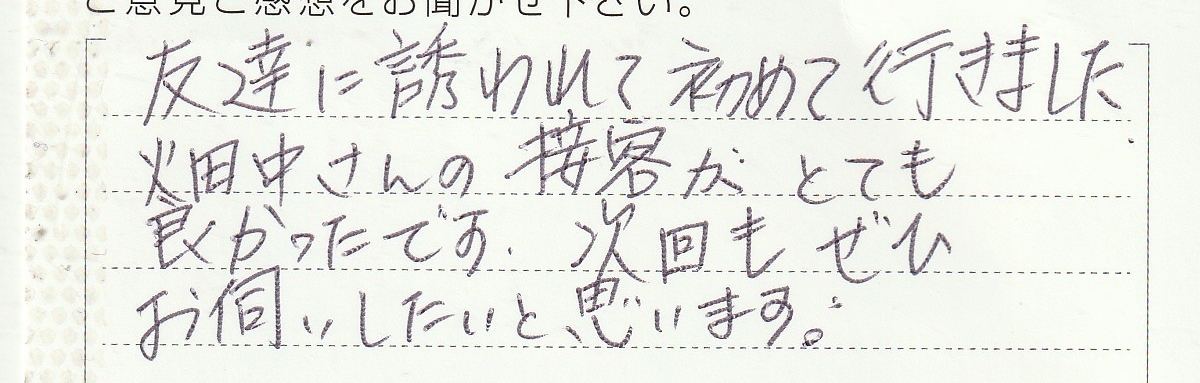 ご意見ご感想をお聞かせ下さい。
友達に誘われて初めて行きました
畑中さんの接客がとても
良かったです. 次回もぜひ
お伺いしたいと思います。